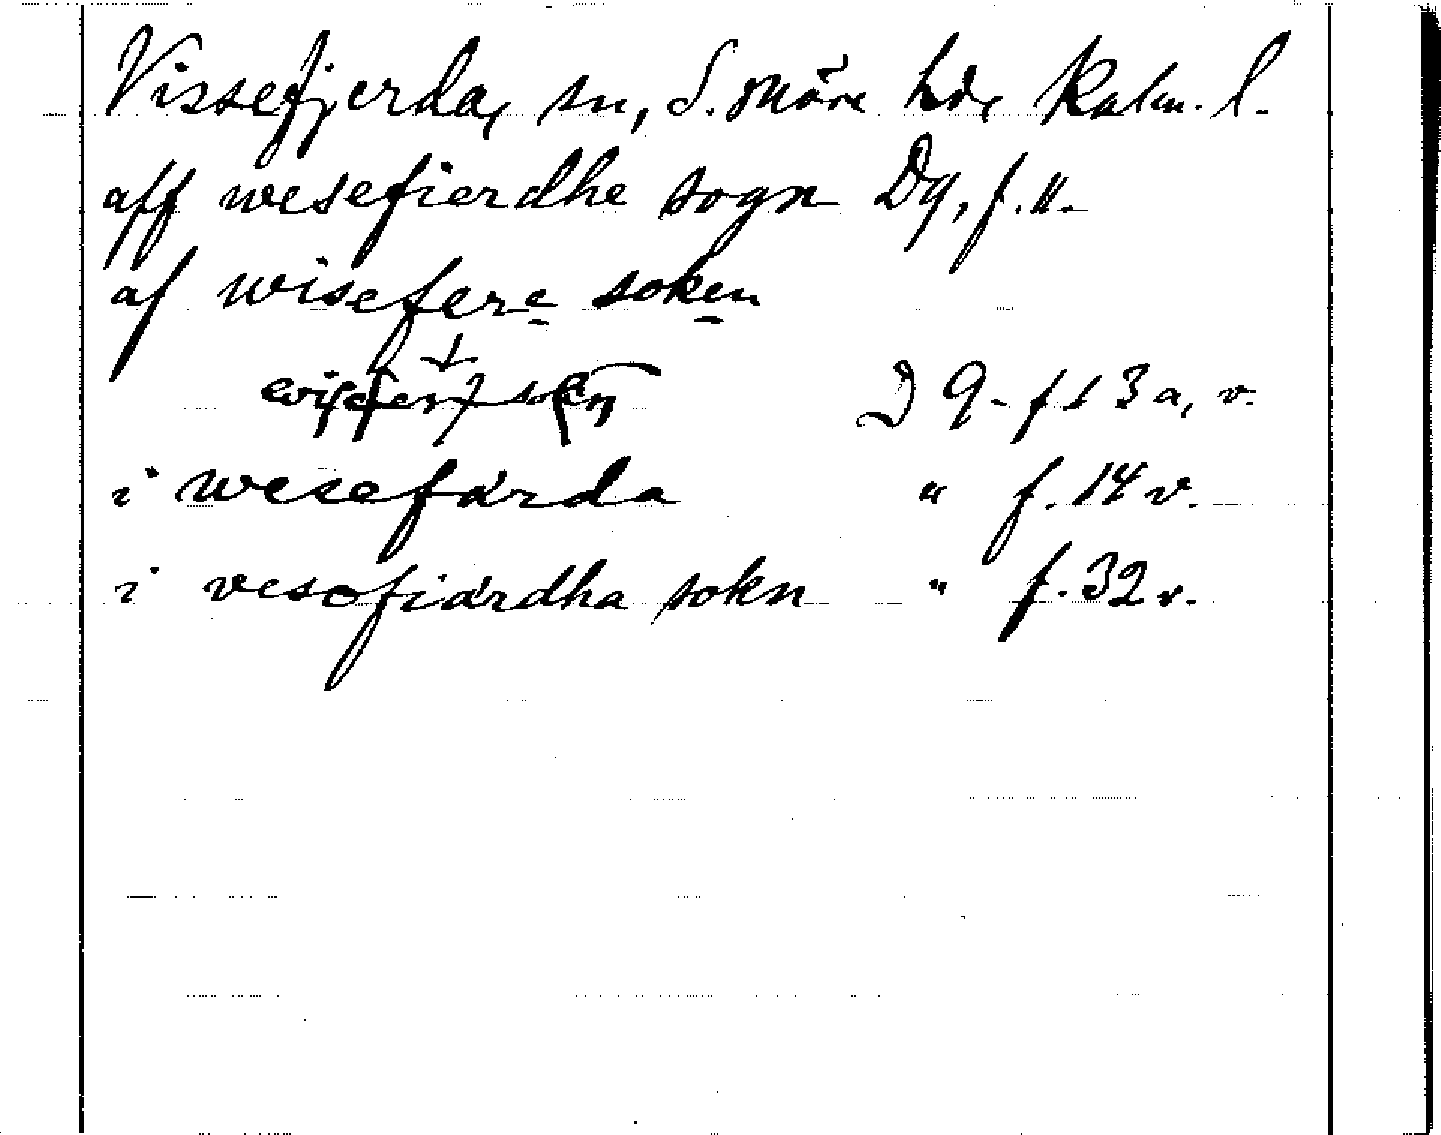 Vissefjerda, sn, S. Möre hd, Kalm. l.
aff wesefierdhe sogn D9, f. 11.
af wisefere soken
D 9 - f 13 a, v.
i wesefärda " f. 14 v.
i vesofiärdha sokn " f. 32 v.